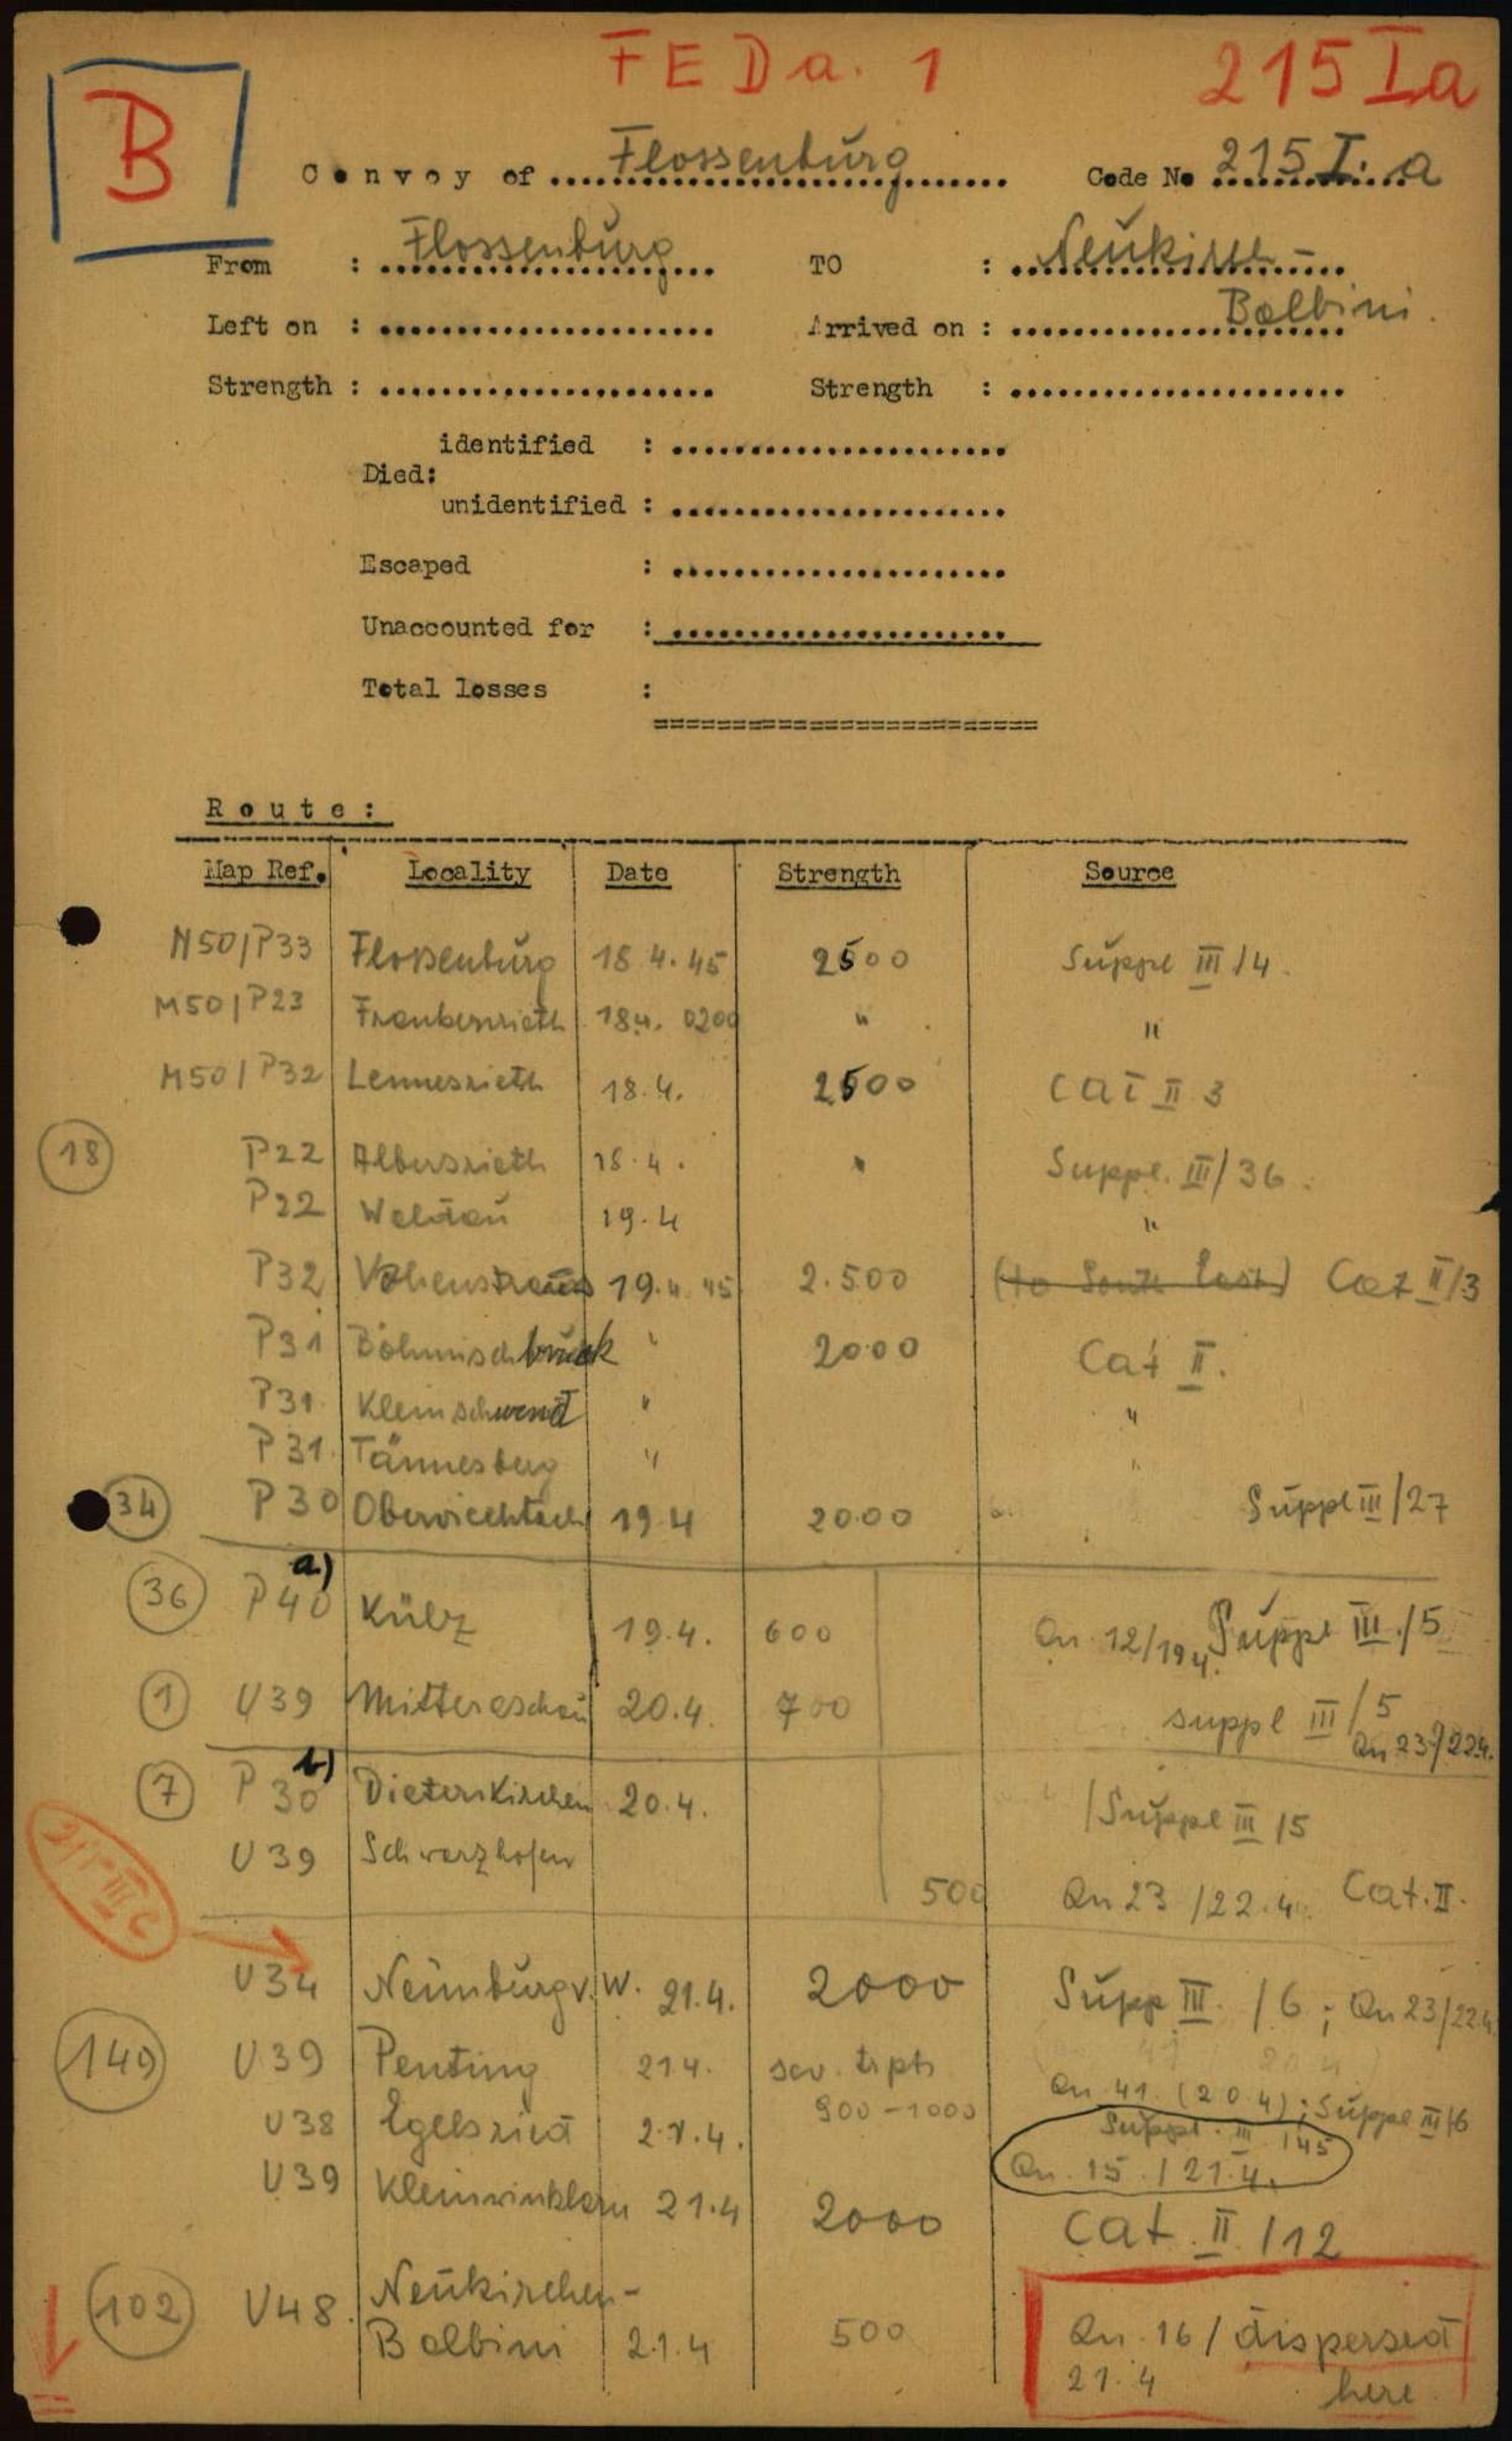 FEDa. 1
215 Ia
B
Convoy of Flossenbürg
Code No 215 I. a
From : Flossenbürg
TO : Neukirch-
Balbini.
Left on :
Arrived on :
Strength :
Strength :
identified :
Died:
unidentified :
Escaped :
Unaccounted for :
Total losses :
Route:
Map Ref. Locality Date Strength Source
N50/P33 Floßenbürg 18 4. 45 2500 Suppl III /4.
M50/P23 Frankenrieth 18.4. 0200 " "
M50/P32 Lennesrieth 18.4. 2500 Cat II 3
18 P22 Albersrieth 18.4. " Suppl. III/36.
P22 Waldau 19.4 "
P32 Vohenstrauss 19.4.45 2.500 (to South East) Cat II/3
P31 Böhmischbruck " 2000 Cat II.
P31. Kleinschwand " "
P31. Tännesberg " "
34 P30 Oberviechtach 19 4 2000 Suppl III/27
a)
36 P40 Külz 19.4. 600 Qn 12/19 4. Suppl III./5
1 U39 Mittereschau 20.4. 700 suppl III/5
Qn 23/22.4.
b)
7 P30 Dieterskirchen 20.4. /Suppl III /5
U39 Schwarzhofen
500 Qn 23 /22.4. Cat. II.
215 III c
U34 Neunburg v. W. 21.4. 2000 Supp III. /6 ; Qn 23/22.4
149 U39 Penting 21 4. sev. trpts
900-1000 Qn 41. (20.4) ; Suppl III/6
U38 Egelsried 21.4. Suppl. III /45
Qn. 15. / 21.4.
U39 Kleinwinklarn 21.4 2000 Cat. II /12
102 U48. Neukirchen-
Balbini 21.4 500 Qn. 16 / dispersed
21. 4 here.